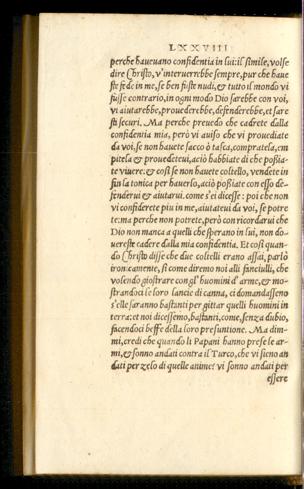 LXXVIII
perche haueuano confidentia in lui: il simile, volse
dire Christo, v'interuerrebbe sempre, pur che haue
ste fede in me, se ben fuste nudi, & tutto il mondo vi
fusse contrario, in ogni modo Dio sarebbe con voi,
vi aiutarebbe, prouederebbe, defenderebbe, et sare
sti securi. Ma perche preuedo che cadrete dalla
confidentia mia, però vi auiso che vi prouediate
da voi, se non hauete sacco ò tasca, compratela, em
pitela & prouedeteui, aciò habbiate di che possia-
te viuere. & così se non hauete coltello, vendete in
fin la tonica per hauerlo, aciò possiate con esso de-
fenderui & aiutarui. come s'ei dicesse: poi che non
vi confiderete piu in me, aiutateui da voi, se potre
te: ma perche non potrete, però con ricordarui che
Dio non manca a quelli che sperano in lui, non do-
uereste cadere dalla mia confidentia. Et così quan-
do Christo disse che due coltelli erano assai, parlò
ironicamente, si come diremo noi alli fanciulli, che
volendo giostrare con gl'huomini d'arme, & mo-
strandoci le loro lancie di canna, ci domandasseno
s'elle saranno bastanti per gittar quelli huomini in
terra: et noi dicessemo, bastanti, come, senza dubio,
facendoci beffe della loro presuntione. Ma dim-
mi, credi che quando li Papani hanno prese le ar-
mi, & sonno andati contra il Turco, che vi sieno an
dati per zelo di quelle anime? vi sonno andati per
essere